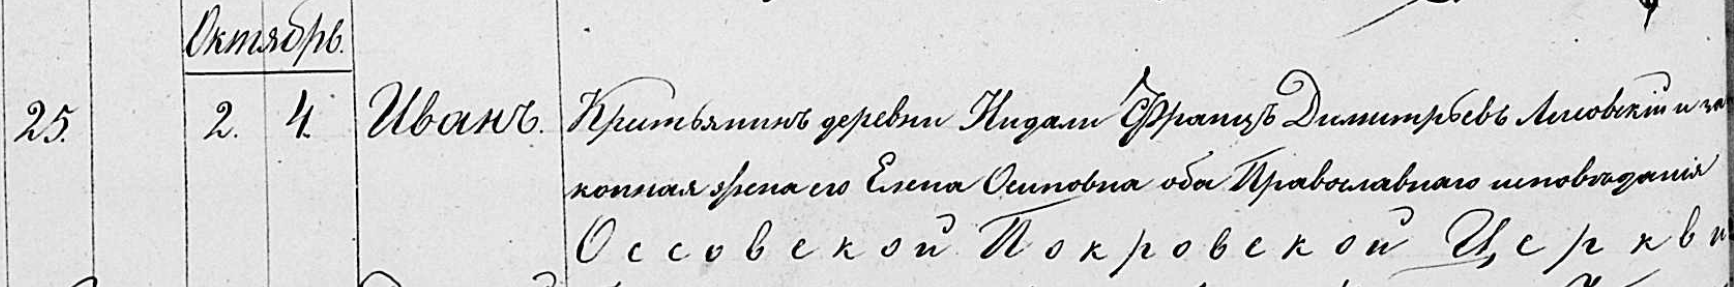 Октябрь.
25. 2. 4. Иванъ. Критьянинъ деревни Нидали Францъ Димитрьевъ Лисовскій и за
конная жена его Елена Осиповна оба Православнаго исповѣданія
Оссовской Покровской Церкви